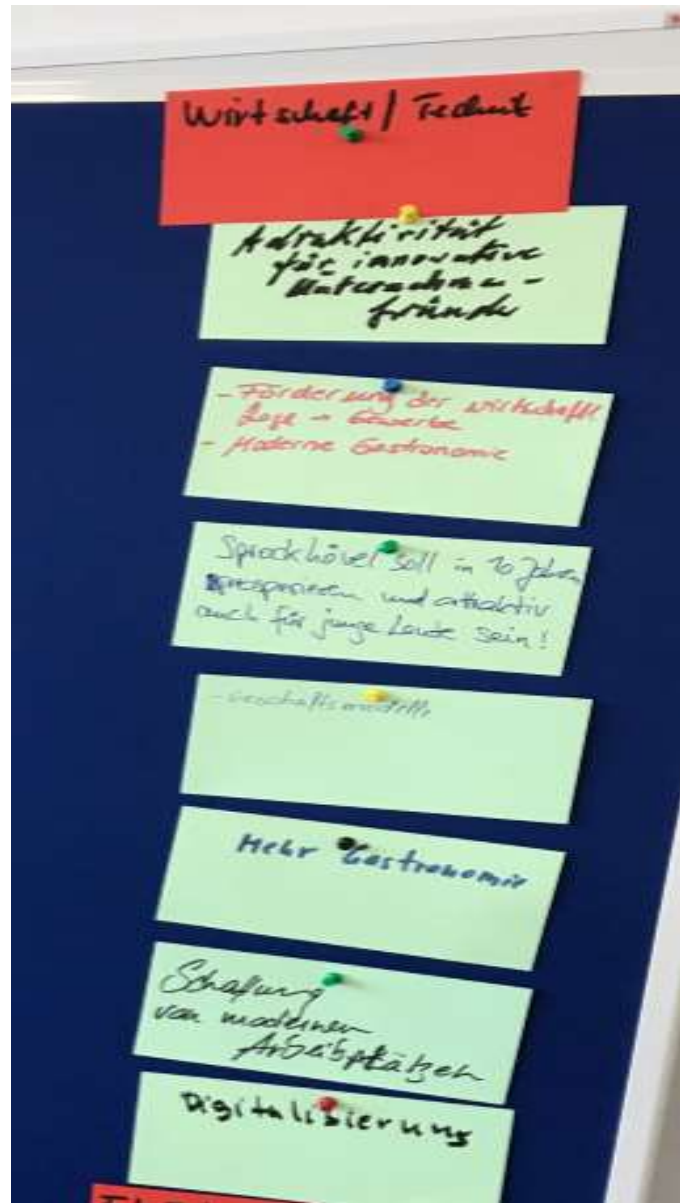 Wirtschaft / Technik
Adraktivität
für innovative
Unternehmen -
gründe
- Förderung der wirtschaftl.
Lage - Gewerbe
- Moderne Gastronomie
Sprockhövel soll in 10 Jahren
prosperieren und attraktiv
auch für junge Leute sein!
- Geschäftsmodelle
Mehr Gastronomie
Schaffung
von modernen
Arbeitsplätzen
Digitalisierung